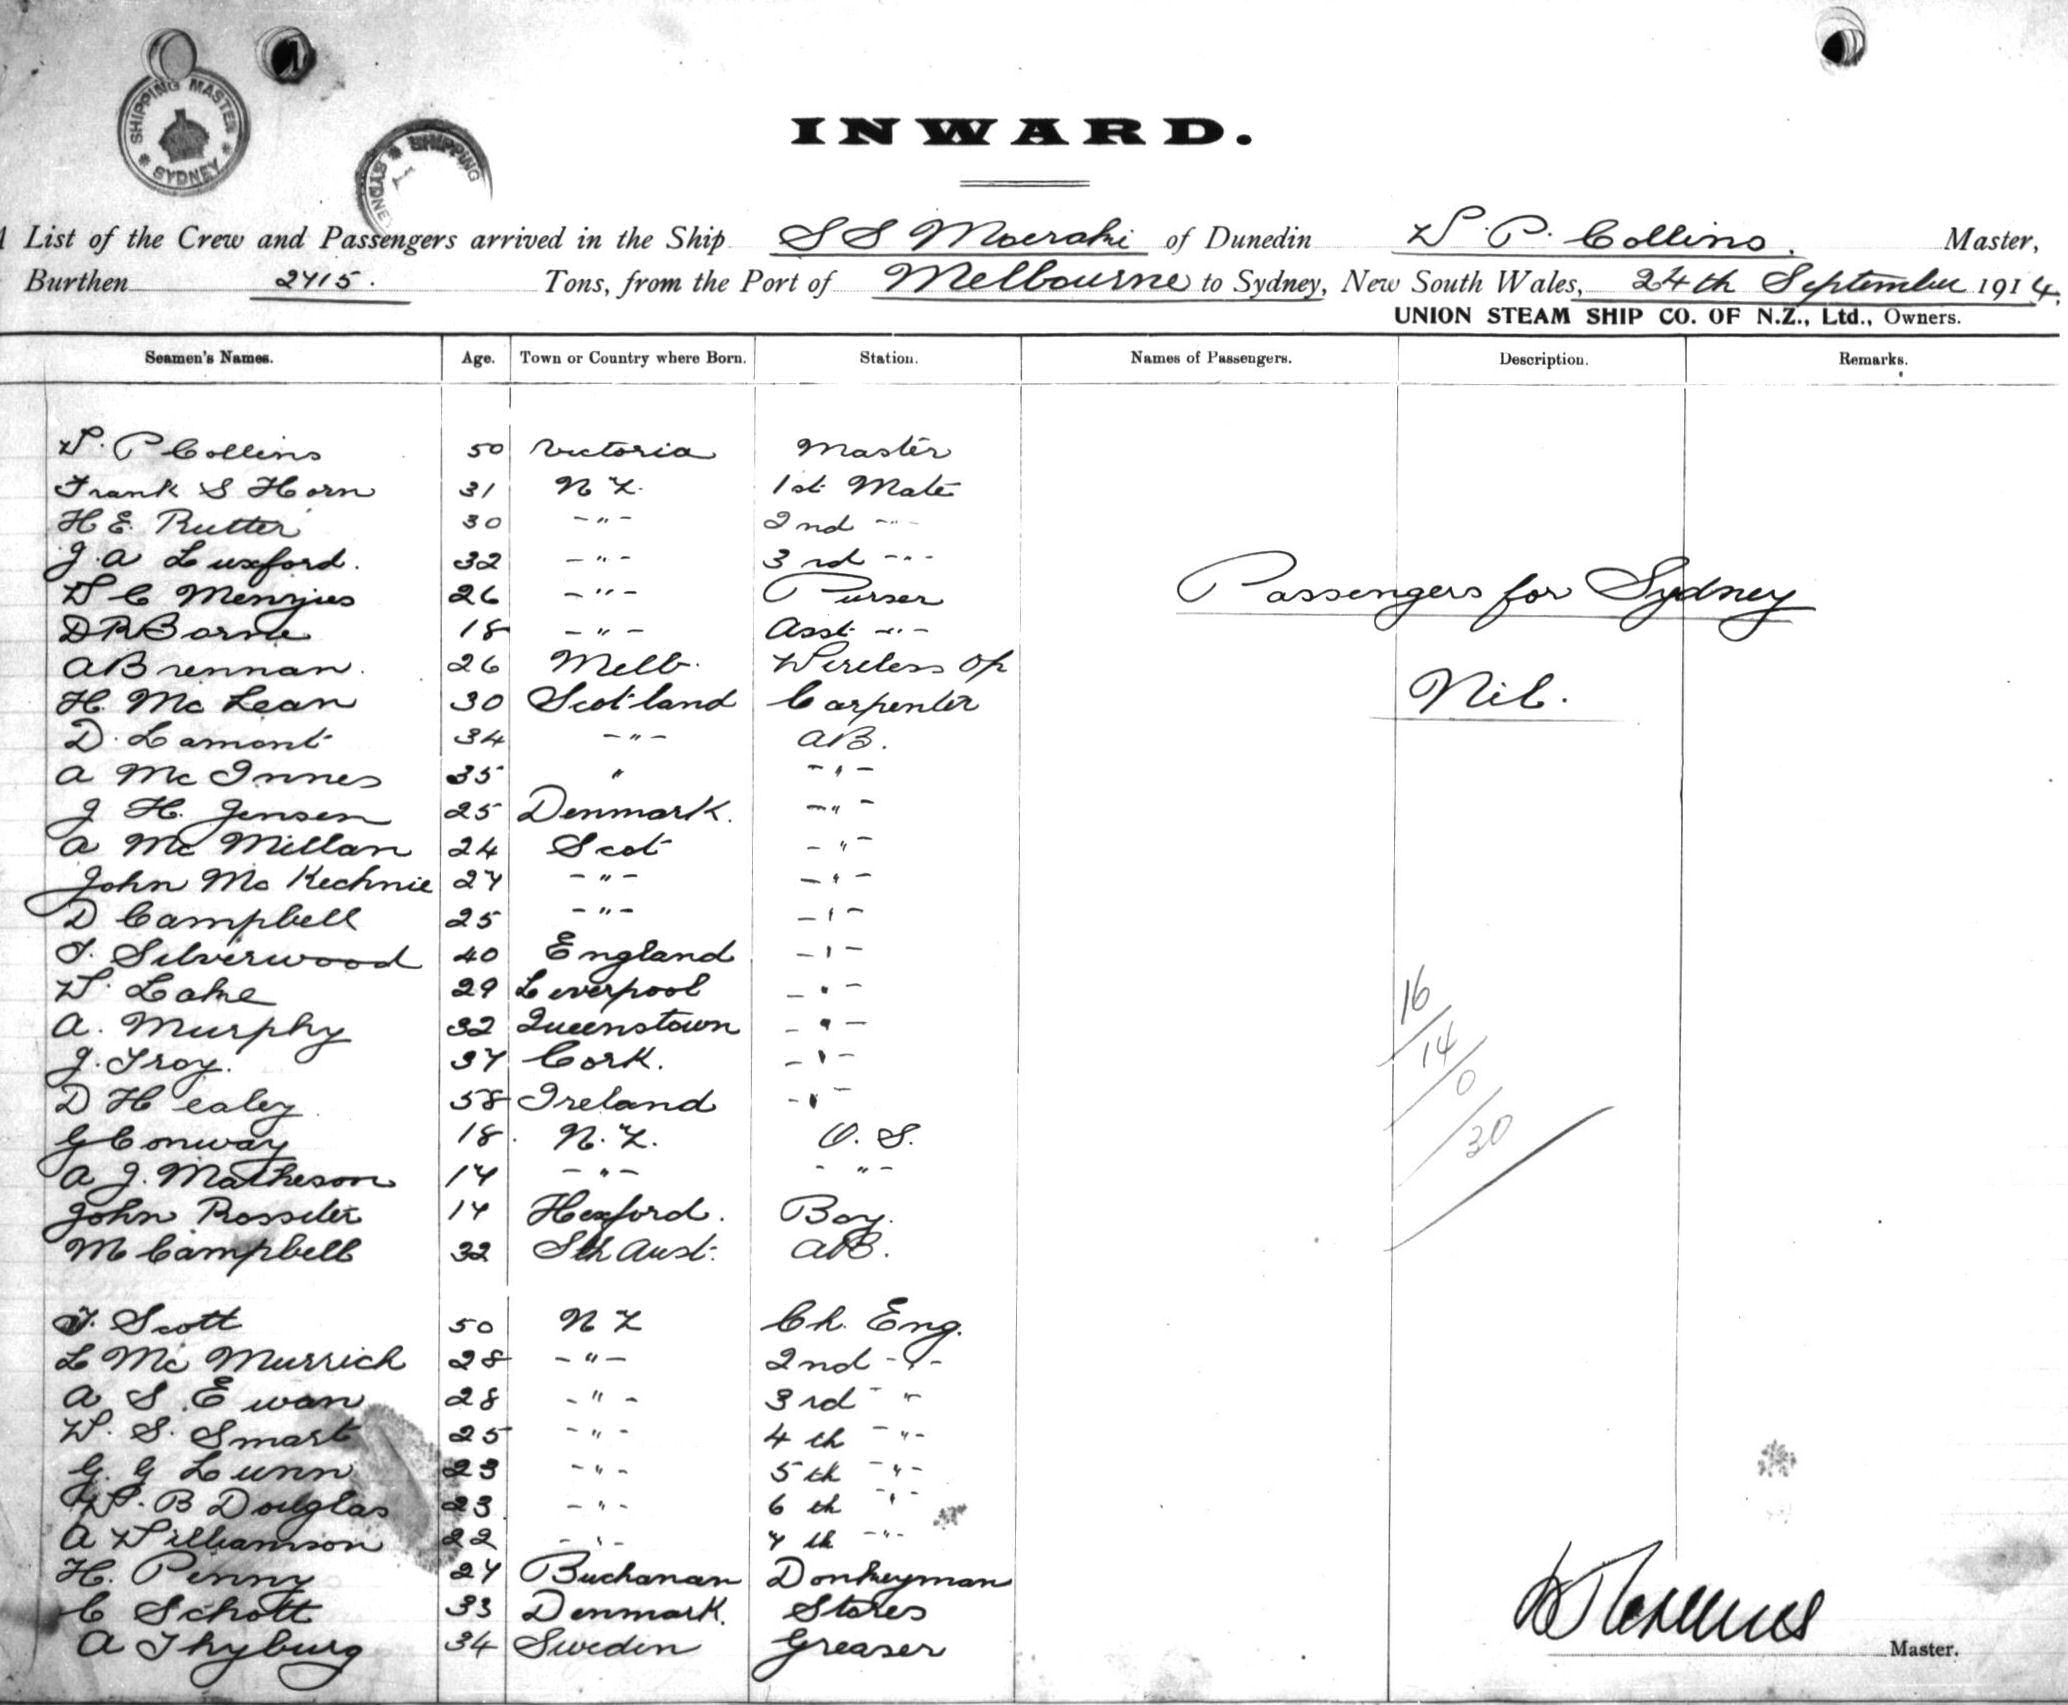 SHIPPING MASTER SYDNEY
SHIPPING SYDNE
INWARD.
List of the Crew and Passengers arrived in the Ship SS Moeraki of Dunedin W. P. Collins. Master,
Burthen 2715. Tons, from the Port of Melbourne to Sydney, New South Wales, 24th September 1914.
UNION STEAM SHIP CO. OF N.Z., Ltd., Owners.
Seamen's Names. Age. Town or Country where Born. Station. Names of Passengers. Description. Remarks.
W. P Collins 50 Victoria Master
Frank S Horn 31 N Z. 1st Mate
H E. Rutter 30 -"- 2nd -"-
J. A Luxford. 32 -"- 3rd -"-
W C Menzies 26 -"- Purser
Passengers for Sydney
D R Barne 18 -"- Asst -"-
A Brennan. 26 Melb. Wireless Op
H. Mc Lean 30 Scotland Carpenter
Nil.
D. Lamont 34 -"- AB.
A Mc Innes 35 " -"-
J H. Jensen 25 Denmark. -"-
A Mc Millan 24 Scot -"-
John Mc Kechnie 27 -"- -"-
D Campbell 25 -"- -"-
T. Silverwood 40 England -"-
W. Lake 29 Liverpool -"-
16
A. Murphy 32 Queenstown -"-
14
J. Troy. 37 Cork. -"-
0
D Healey 58 Ireland -"-
G Conway 18. N. Z. O. S.
30
A J. Matheson 17 -"- -"-
John Rossiter 17 Boy.
M Campbell 32 Sth Aust. AB.
T. Scott 50 N Z Ch. Eng.
L Mc Murrich 28 -"- 2nd -"-
A S. Ewan 28 -"- 3rd -"
W. S. Smart 25 -"- 4th -"-
G. G Lunn 23 -"- 5th -"-
W. B Douglas 23 -"- 6th -"-
A Williamson 22 -"- 7th -"-
H. Penny 27 Buchanan Donkeyman
C Schott 33 Denmark. Stores
A Thyburg 34 Sweden Greaser
W P Collins Master.